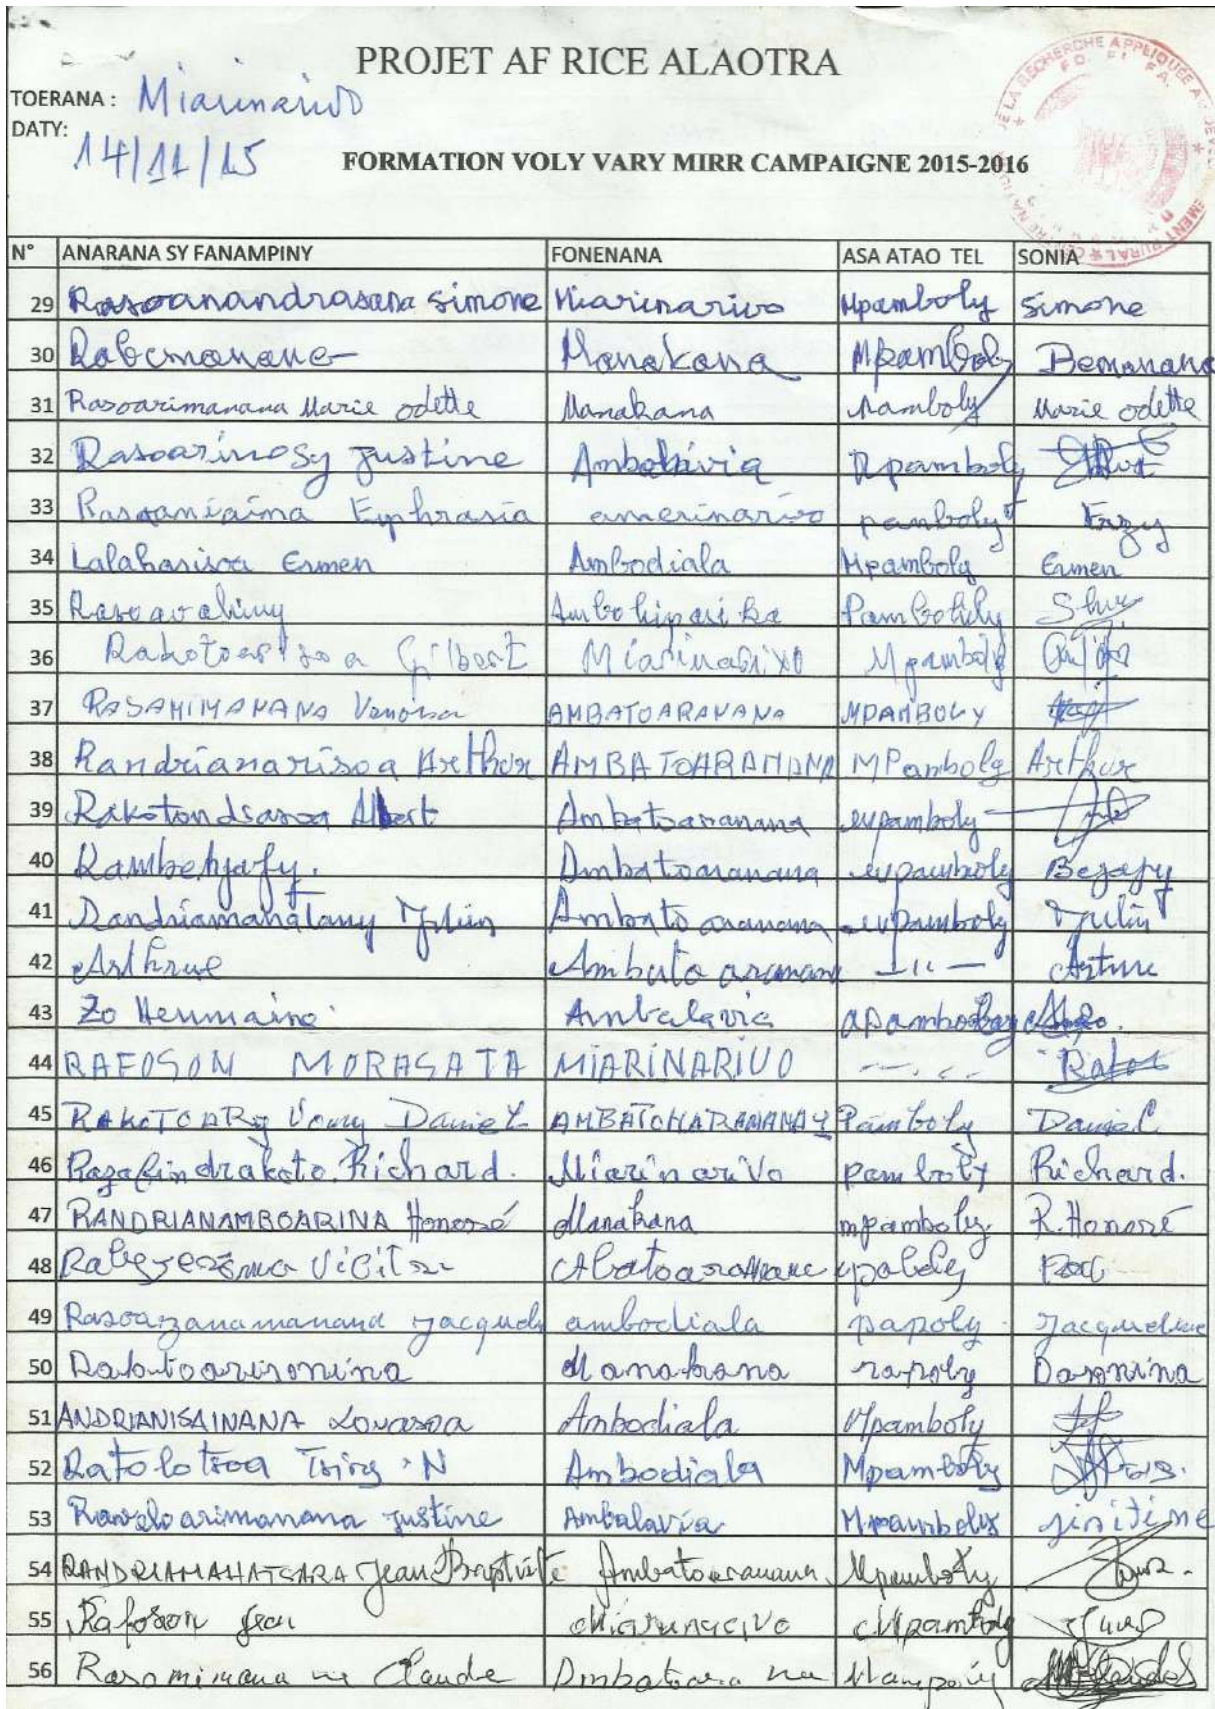 PROJET AF RICE ALAOTRA
TOERANA : Miarinarivo
DATY: 14/11/15
FORMATION VOLY VARY MIRR CAMPAIGNE 2015-2016
N° ANARANA SY FANAMPINY FONENANA ASA ATAO TEL SONIA
29 Rasoanandrasana Simone Miarinarivo Mpamboly Simone
30 Rabemanana Manakana Mpamboly Bemanana
31 Rasoarimanana Marie odette Manakana Mamboly Marie odette
32 Rasoarinosy Justine Ambalavia Mpamboly
33 Rasoaniaina Euphrasia amerinarivo pamboly
34 Lalaharisoa Ermen Ambodiala Mpamboly Ermen
35 Rasoavahiny Ambohipasika
36 Rakotoarisoa Gilbert Miarinarivo Mpamboly
37 RASAMIMANANA AMBATOARANANA MPAMBOLY
38 Randrianarisoa Arthur AMBATOARANANA MPamboly Arthur
39 Rakotondrasoa Albert Ambatoaranana mpamboly
40 Rambehjafy. Ambatoaranana mpamboly Bejafy
41 Randriamahatany Julien Ambatoaranana mpamboly Julin
42 Arthrue Ambatoaranana -"- Arture
43 Zo Heumaine Ambalavia
44 RAFOSON MORASATA MIARINARIVO
45 RAKOTOARy Vony Daniel AMBATOHARANANAY Pamboly Daniel
46 Razafindrakoto Richard. Miarinarivo pamboly Richard.
47 RANDRIANAMBOARINA Honoré Manakana mpamboly. R. Honoré
48
49 Rasoazanamanana Jacqueli ambodiala papoly Jacqueline
50 Rakotoarisonina Manakana rapoly
51 ANDRIANISAINANA Lovasoa Ambodiala Mpamboly
52 Ratolotsoa Tsiry N Ambodiala Mpamboly
53 Raveloarimanana Justine Ambalavia Mpamboly jisitine
54 RANDRIAMAHATSARA Jean Baptiste Ambatoaranana Mpamboly
55 Rafoson Jean Miarinarivo Mpamboly
56 Claude